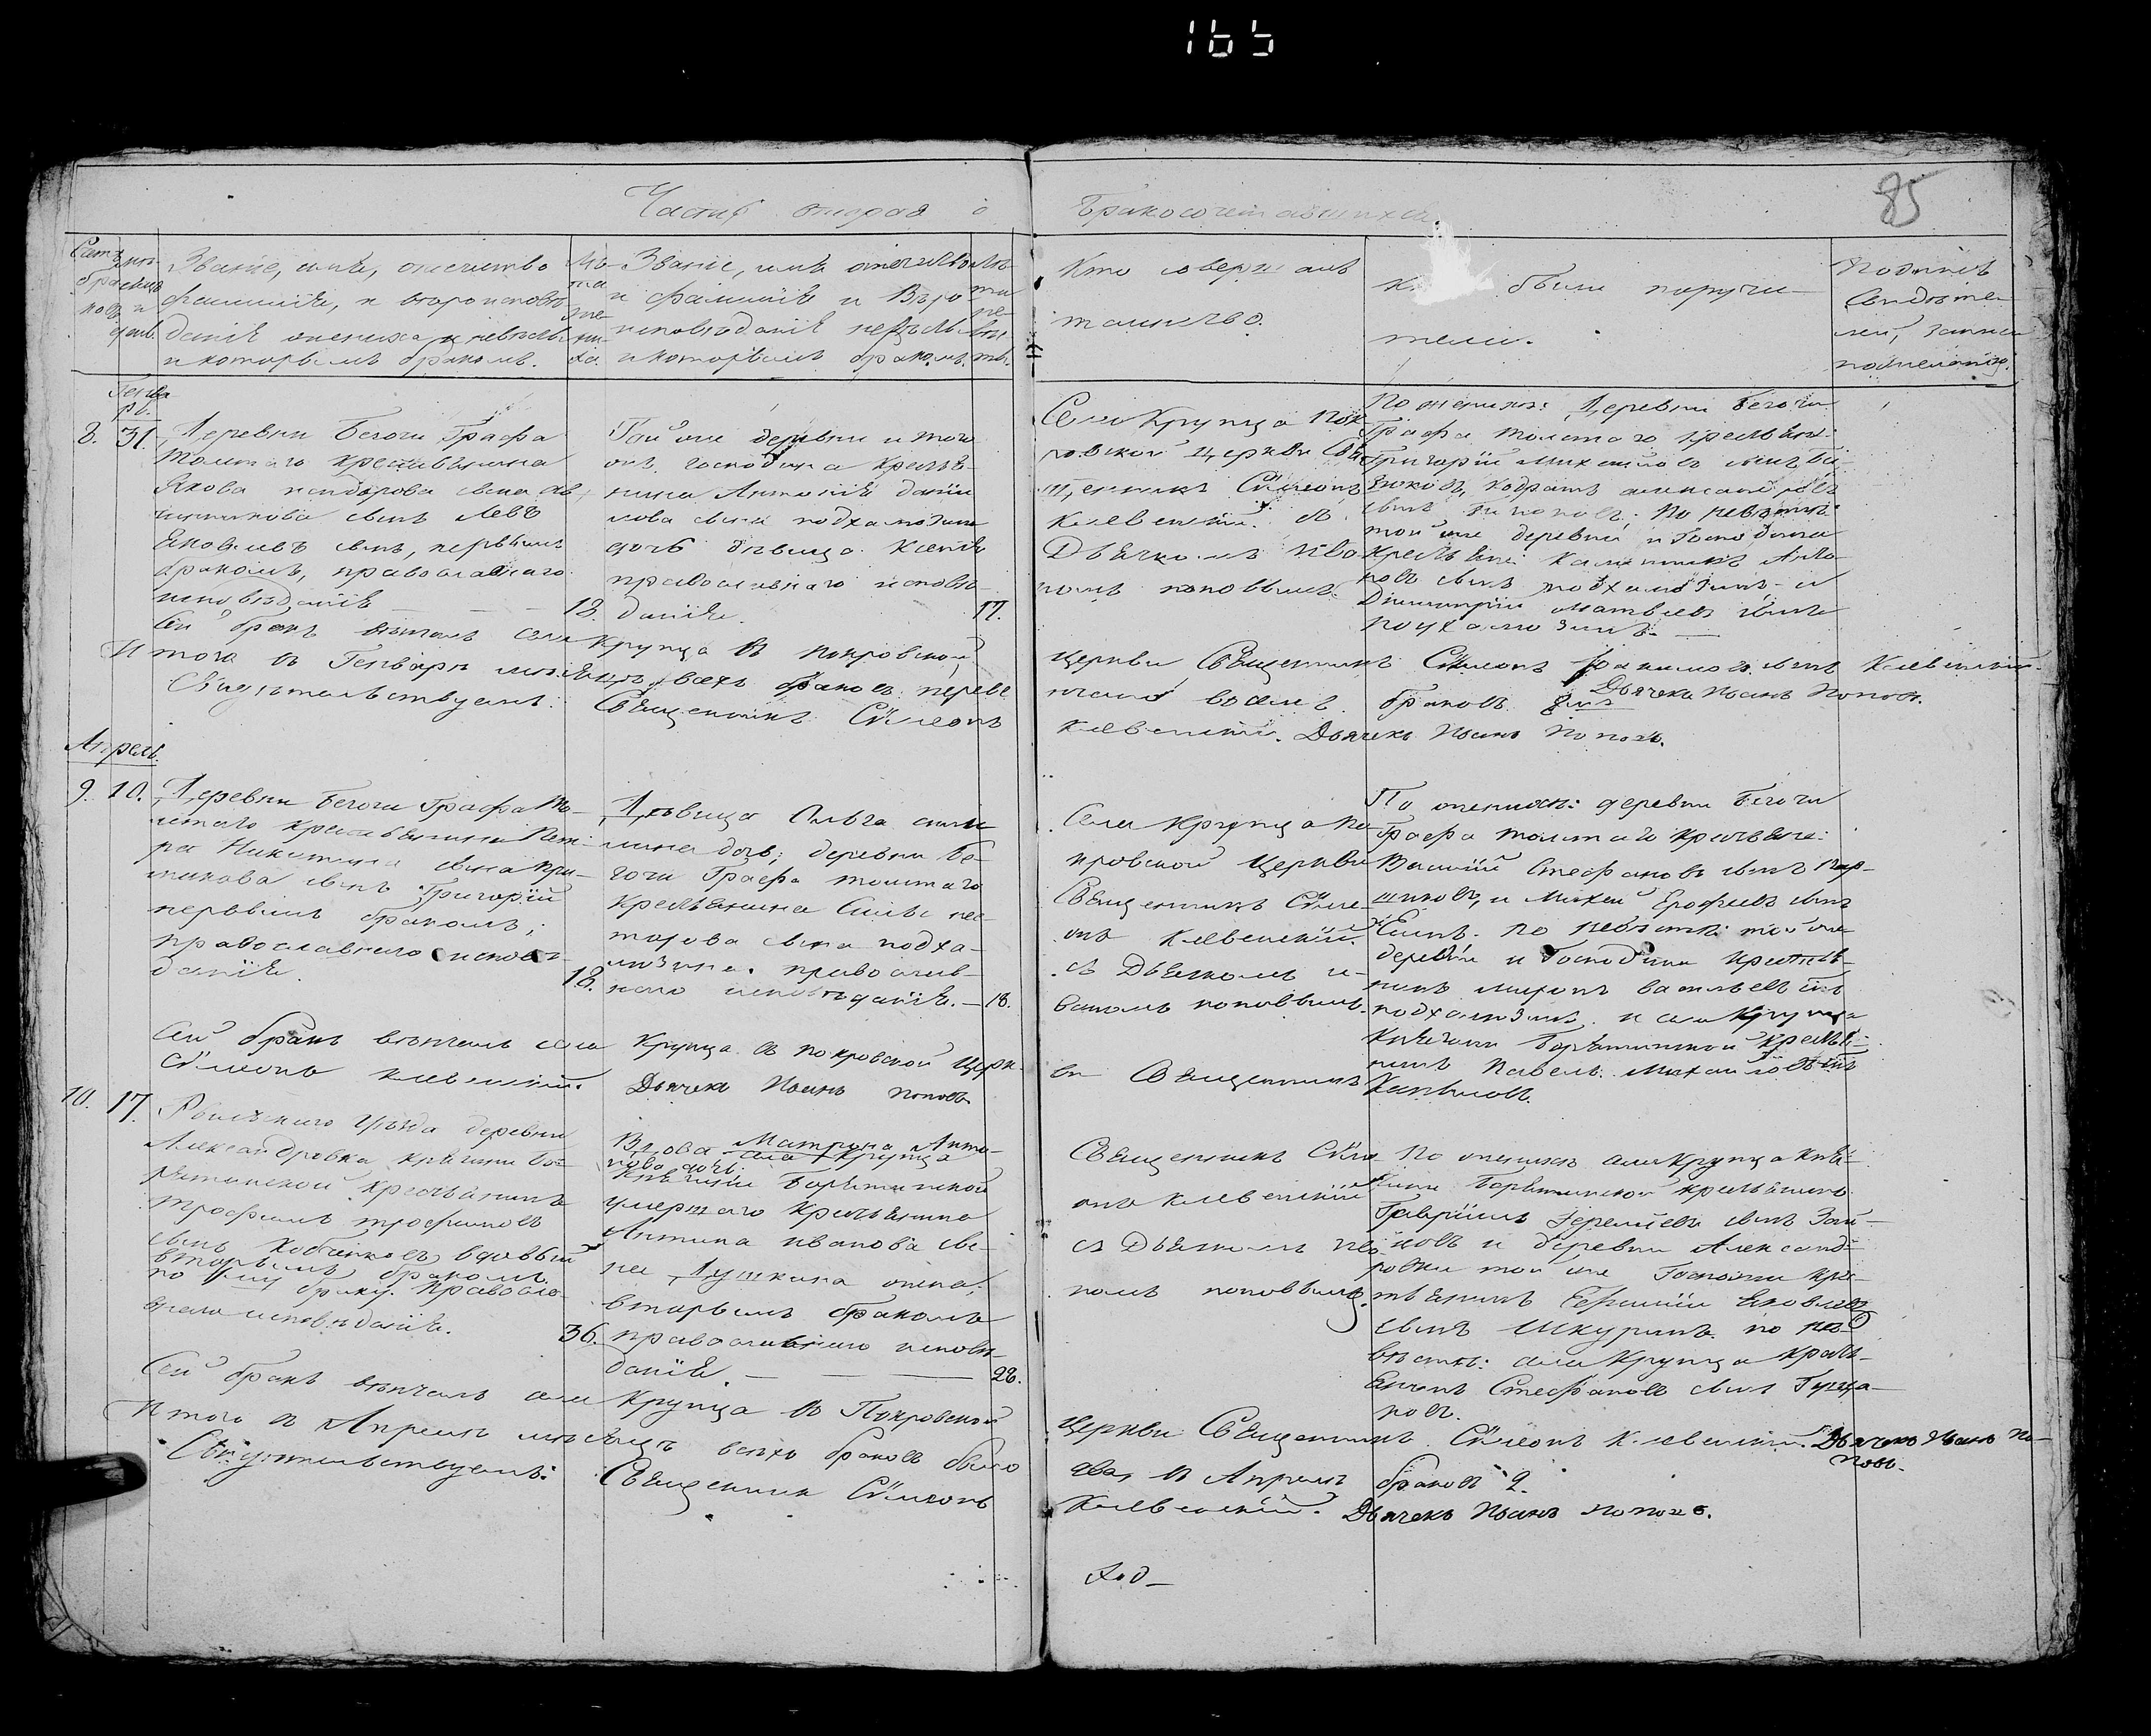 165
85
Часть вторая о бракосочетавшихся.
Званіе, имя, отечество
фамилія, и вѣроисповѣ
даніе жениха и невѣсты
и которымъ бракомъ.
Лѣ
та
же
ни
ха.
Званіе, имя отечество
и фамилія и Вѣро
исповѣданіе невѣсты
и которымъ бракомъ.
Лѣ
ти
не
вѣс
ты.
Кто совершалъ
таинство.
были поручи
тели.
Подпись
Свидѣте
лей, записи
по желанію.
Генва
рь.
8. 31.
Деревни Бегочи Графа
Толстаго крестьянина
Якова сына
сынъ Левъ
Яковлевъ сынъ, первымъ
бракомъ, православнаго
исповѣданія — — — 18.
Той же деревни и того
жъ господина крестья-
нина Антонія Дании
лова сына подхалюзина
дочь дѣвица Ксенія
православнаго исповѣ-
данія. 17.
Села Крупца Пок
ровской церкви Свя
щенникъ Сѵмеонъ
Клевенскій. съ
Дьячкомъ Ива
номъ поповымъ.
По женихѣ: Деревни Бегочи
Графа толстаго крестьяне:
Григорій Михайловъ сынъ Би-
зюковъ, Кодратъ александровъ
сынъ по невѣстѣ:
той же деревни и Господина
крестьяне Анто
новъ сынъ подхалюзинъ и
Димитрій Матвѣевъ сынъ
подхалюзинъ. —
Сей бракъ вѣнчалъ села Крупца въ покровской церкви Священникъ Сѵмеонъ сынъ Клевенскій.
Дьячекъ Иванъ Поповъ.
Итого въ Генварѣ мѣсяцѣ всѣхъ браковъ переве
нчано восемь браковъ 8мь
Свидѣтельствуемъ: Священникъ Сѵмеонъ Клевенскій. Дьячекъ Иванъ Поповъ.
Апрель.
9. 10.
Деревни Бегочи Графа То
лстаго крестьянина Пет-
ра Никитина сына
сынъ Григорій
первымъ бракомъ,
православнаго исповѣ-
данія. 18.
Дѣвица Ольга силы
чина дочь; деревни Бе-
гочи Графа толстаго
крестьянина Силы нес
торова сына подха-
люзина. православ-
наго исповѣданія. — 18.
Села Крупца По
кровской церкви
Священникъ Сѵме-
онъ Клевенскій.
съ Дьячкомъ и-
ваномъ поповымъ.
По женихѣ: деревни Бегочи
Графа толстаго крестьяне:
Василій Стефановъ сынъ
и Михей Ерофеевъ сынъ
по невѣстѣ: той же
деревни и Господина крестья-
нинъ миронъ васильевъ сынъ
подхалюзинъ. и села Крупца
Княгини Борятинской крестья-
нинъ Павелъ Михайловъ сынъ
Сей бракъ вѣнчалъ села Крупца въ покровской церк-
ви Священникъ
Сѵмеонъ Клевенскій. Дьячекъ Иванъ Поповъ.
10. 17.
Рыльскаго уѣзда деревни
Александровка княгини Бо-
рятинской крестьянинъ
трофимъ трофимовъ
сынъ вдовый
вторымъ бракомъ.
по браку. Правосла
внаго исповѣданія. 36.
Вдова Матрона Анти-
пова дочь села Крупца
Княгини Борятинской
умершаго крестьянина
Антипа иванова сы-
на Душкина жена;
вторымъ бракомъ
православнаго исповѣ-
данія. — — — 28.
Священникъ Сѵме
онъ Клевенскій
съ Дьячкомъ Ива
номъ поповымъ.
По женихѣ села Крупца Кня-
гини Борятинской крестьянинъ
Гавріилъ Геремѣевъ сынъ Зай-
цовъ и деревни Александ-
ровки той же Госпожи крес
тьянинъ Ефимій Яковлевъ
сынъ Шкуринъ. по не-
вѣстѣ: села Крупца крес-
Стефановъ сынъ
Сей бракъ вѣнчалъ села Крупца въ Покровской церкви Священникъ Сѵмеонъ Клевенскій. Дьячекъ Иванъ По-
повъ.
Итого въ Апрелѣ мѣсяцѣ всѣхъ браковъ было два, въ Апрелѣ браковъ 2.
Свидѣтельствуемъ: Священникъ Сѵмеонъ Клевенскій. Дьячекъ Иванъ Поповъ.